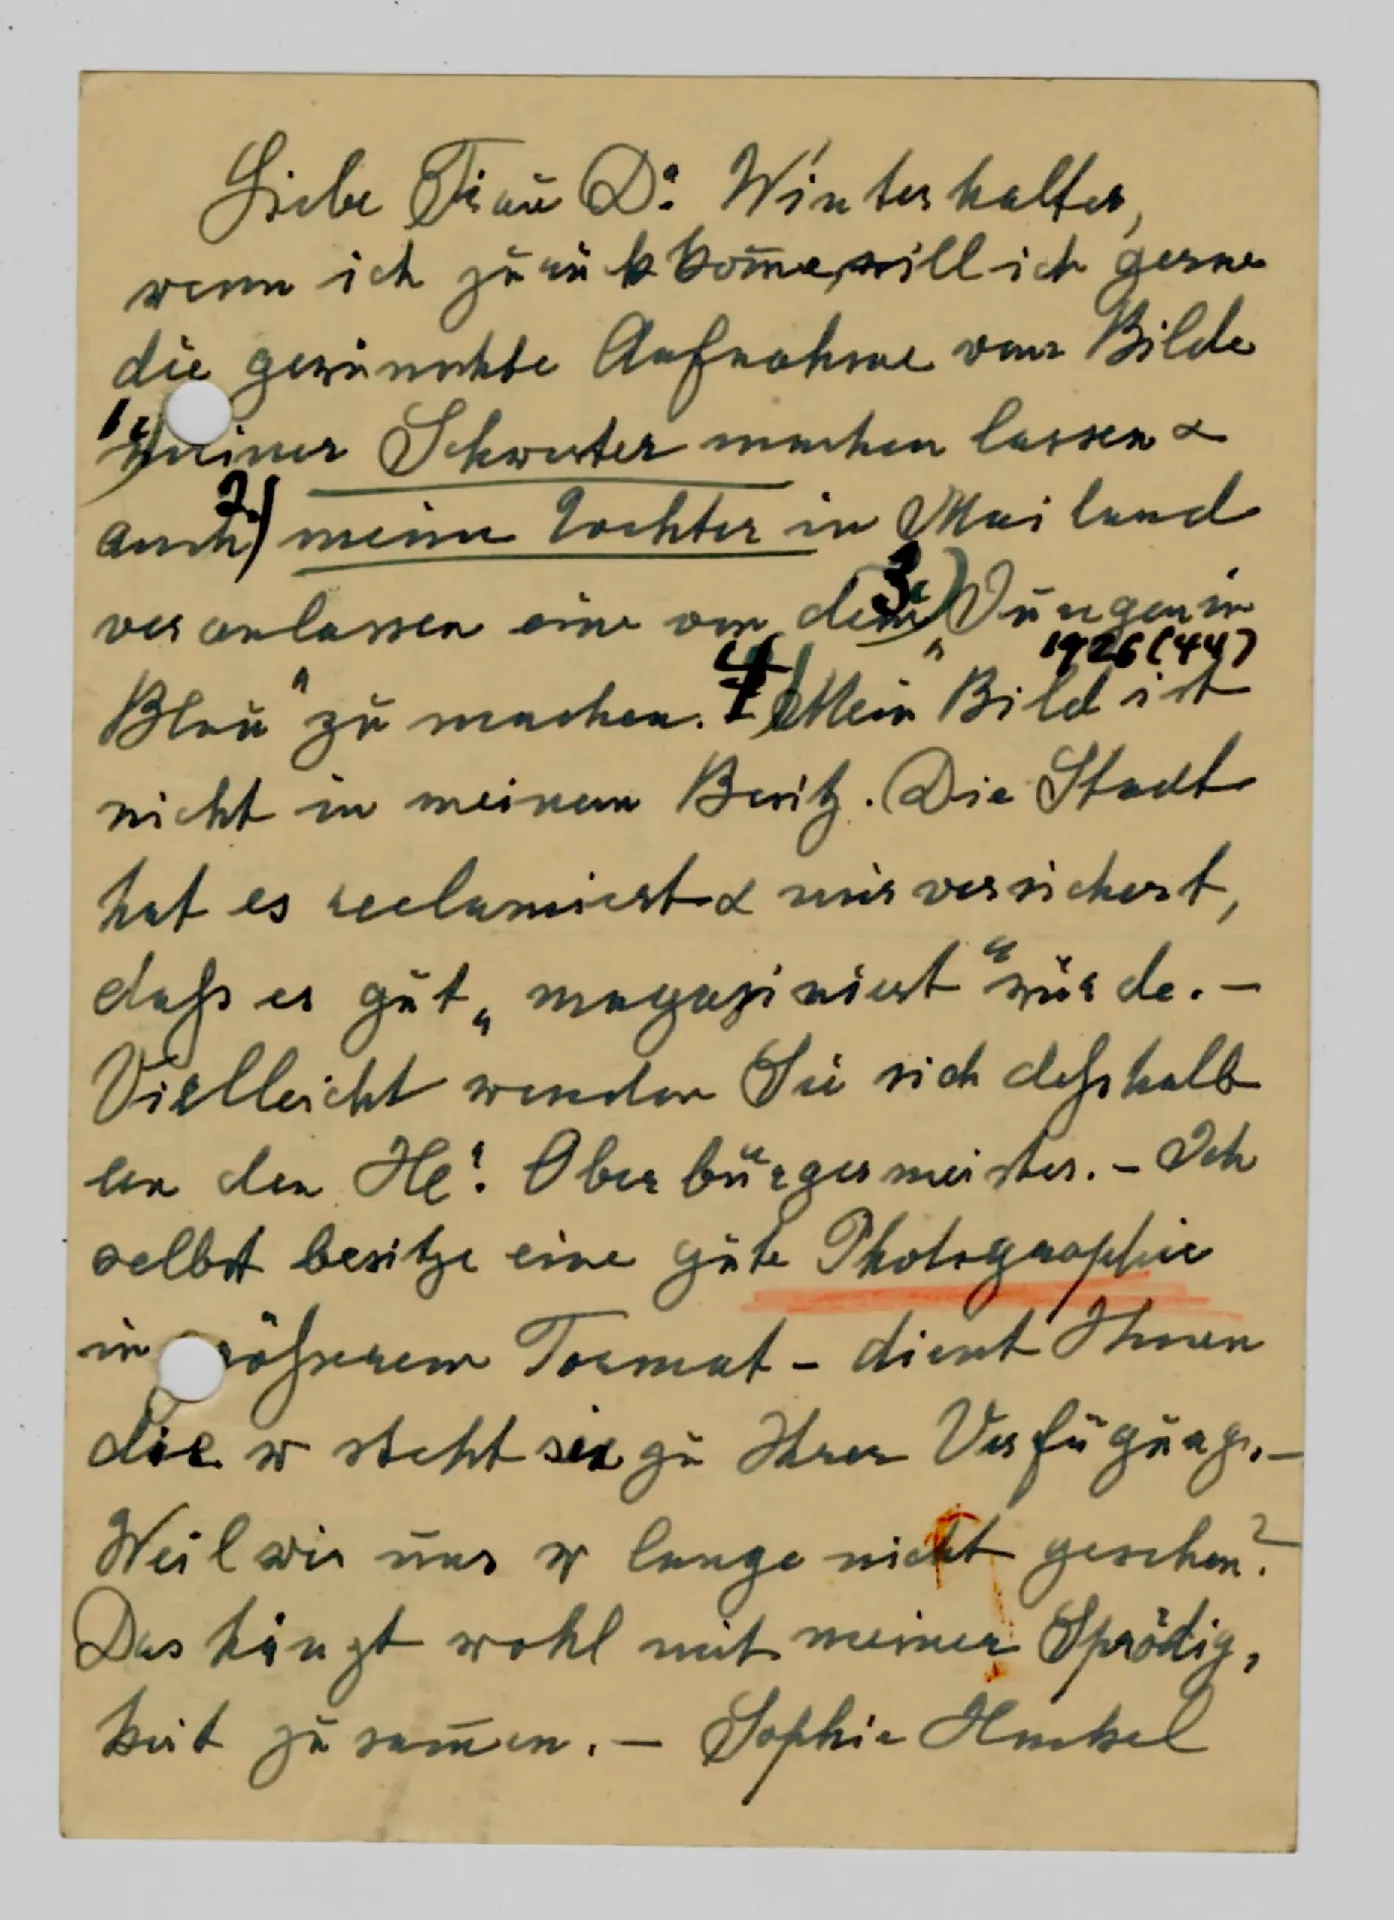 Liebe Frau Dr. Winterhalter,
wenn ich zurückkom̄e, will ich gerne
die gewünschte Aufnahme vom Bilde
1.) meiner Schwester machen lassen &
auch 2.) meine Tochter in Mailand
veranlassen eine von dem 3.) „Jungen in
1926 (44)
Blau" zu machen. - 4.) Mein Bild ist
nicht in meinem Besitz. Die Stadt
hat es reclamiert & mir versichert,
daß es gut „magaziniert" würde. -
Vielleicht wenden Sie sich deßhalb
an den He: Oberbürgermeister. - Ich
selbst besitze eine gute Photographie
in größerem Format - dient Ihnen
die so steht sie zu Ihrer Verfügung. -
Weil wir uns so lange nicht gesehen?
Das hängt wohl mit meiner Sprödig,
keit zusam̄en. - Sophie